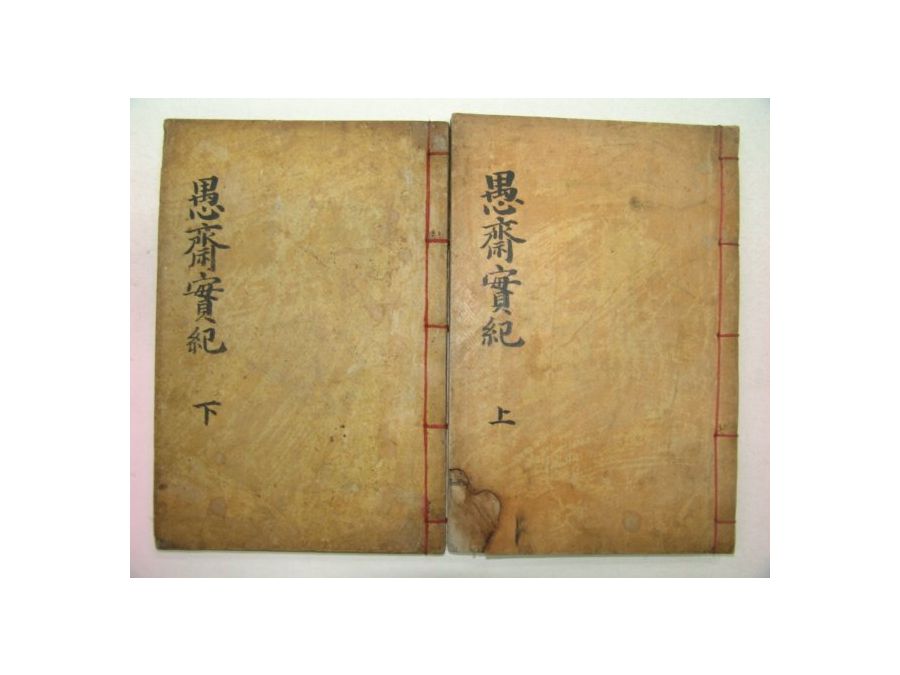 愚齋實紀
上
愚齋實紀
下